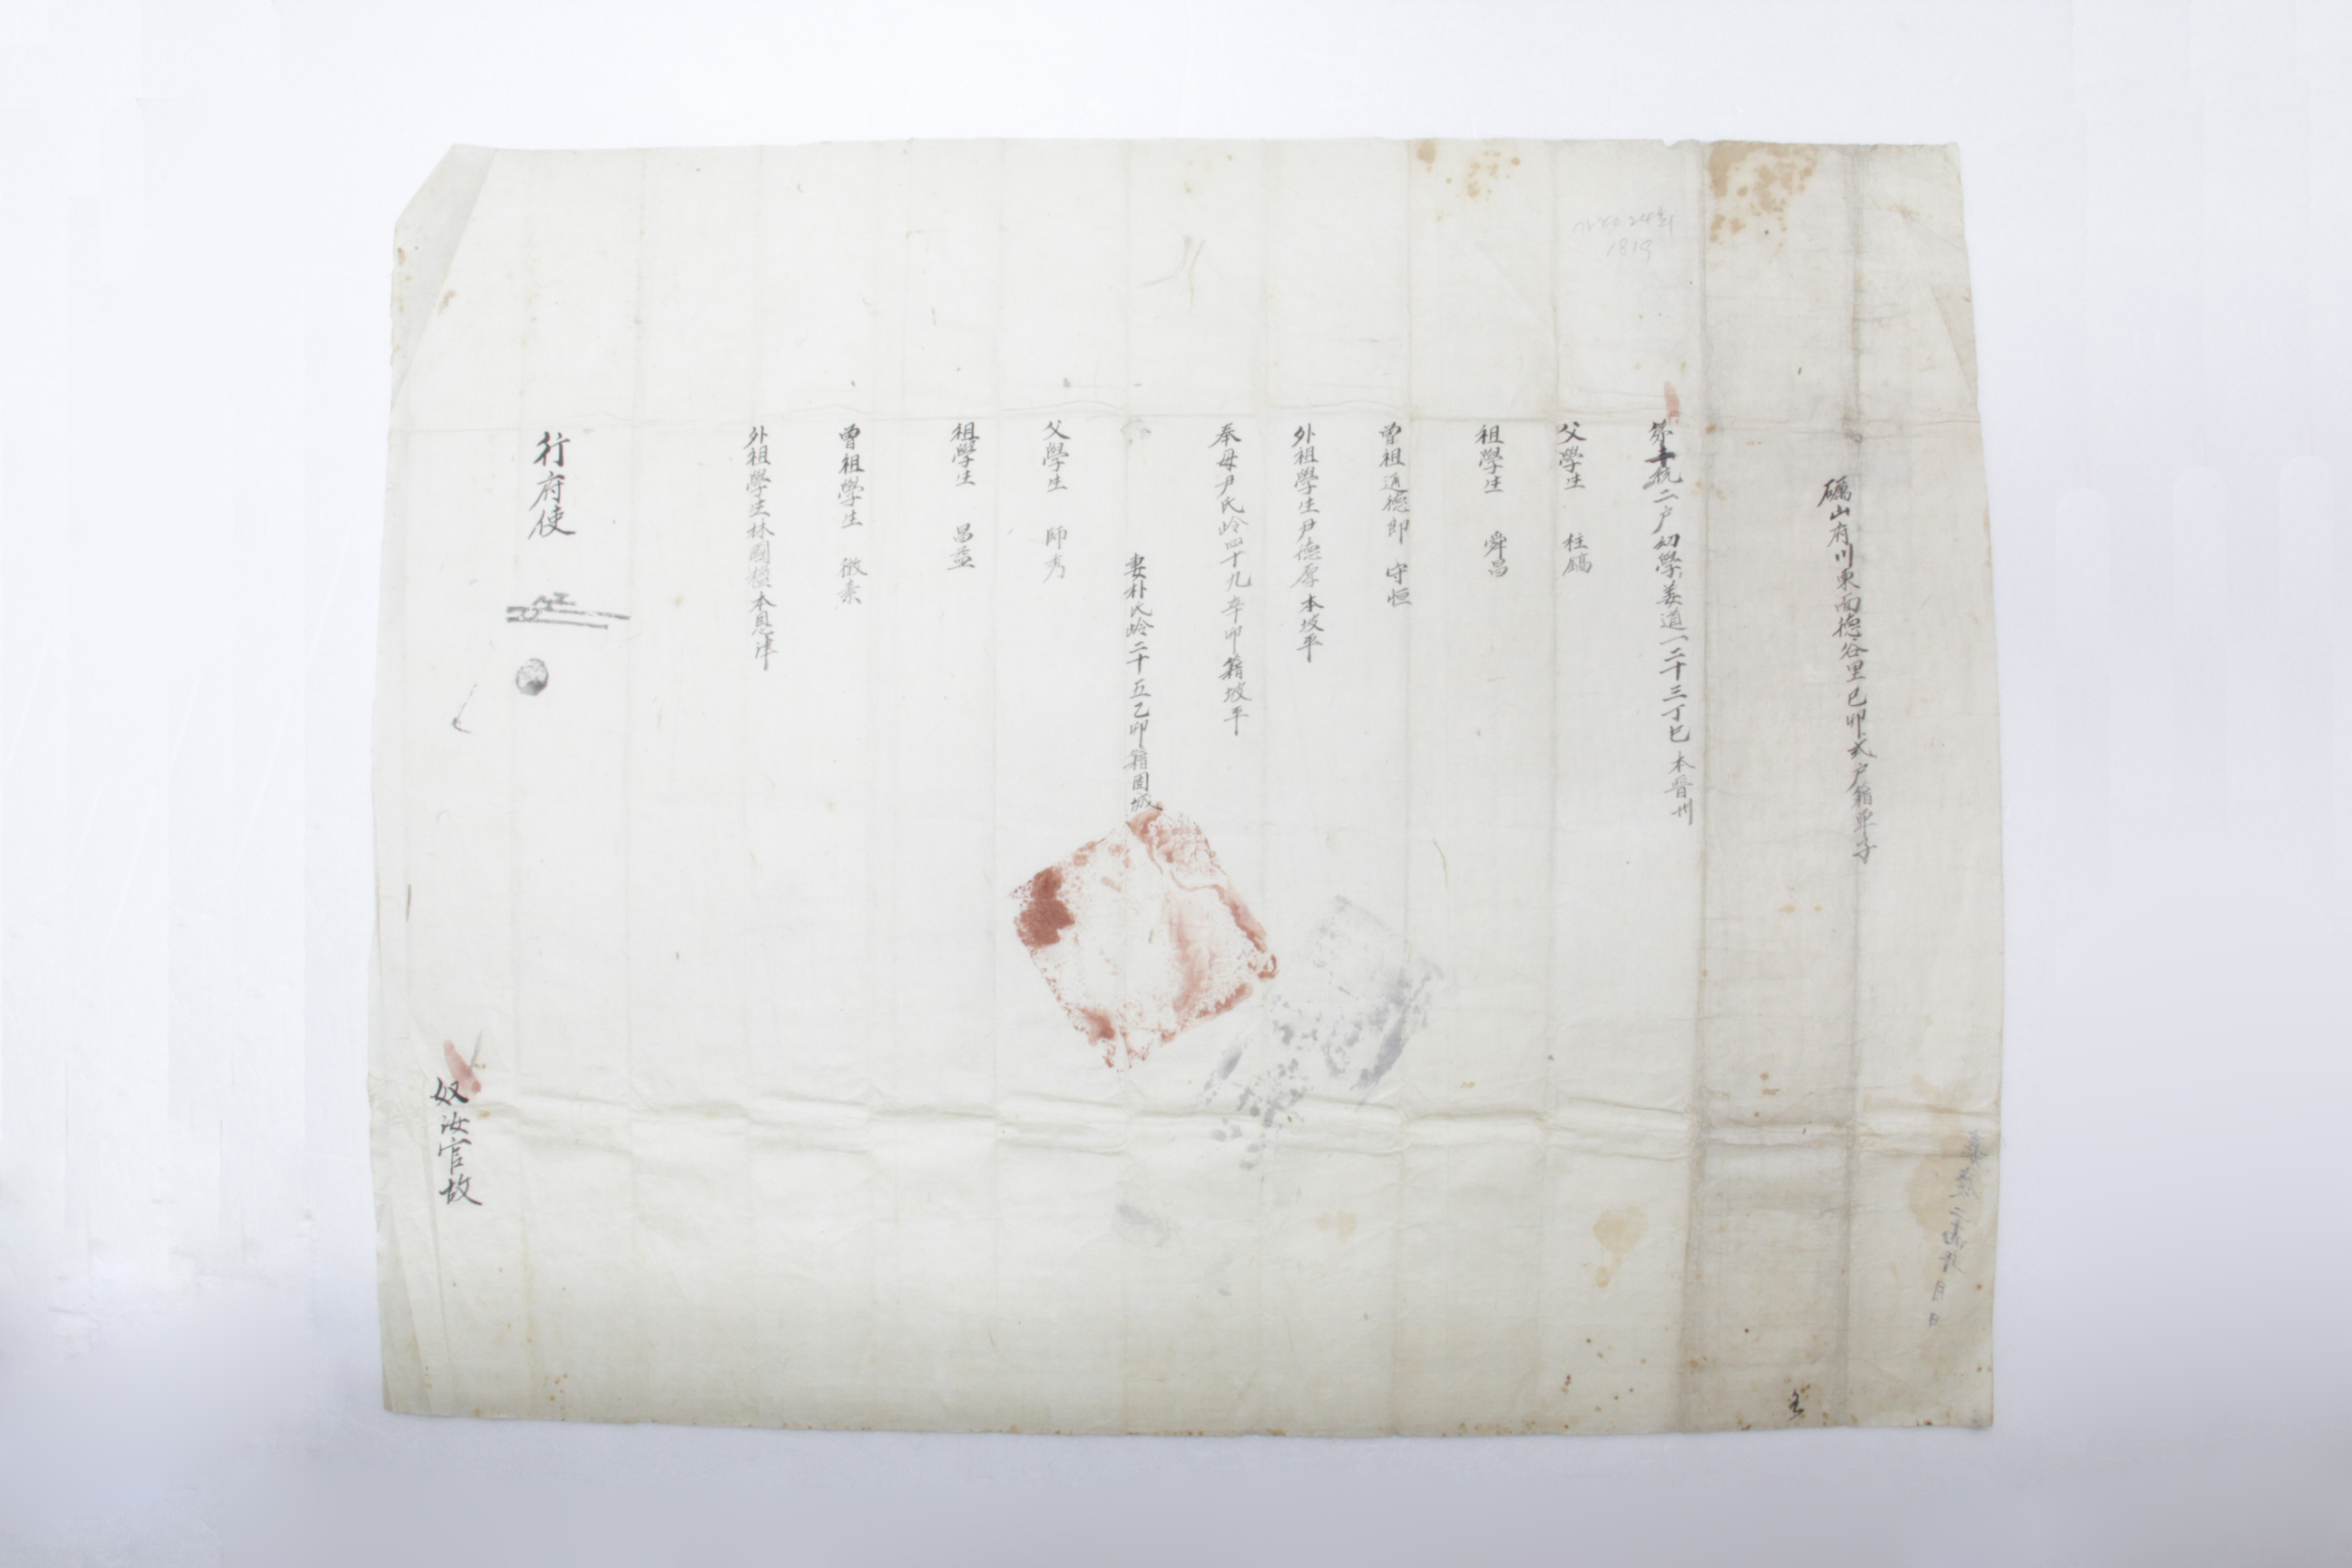 礪山府川東面德谷里己卯式戶籍單子
第十統二戶幼學姜道一二十三丁巳本晋州
父學生 柱鎬
祖學生 舜昌
曾祖通德郎 守恒
外祖學生尹德厚本坡平
奉母尹氏齡四十九辛卯籍坡平
妻朴氏齡二十五乙卯籍固城
父學生 師秀
祖學生 昌益
曾祖學生 徵素
外祖學生林國 本恩津
行府使
奴汝官故
1819